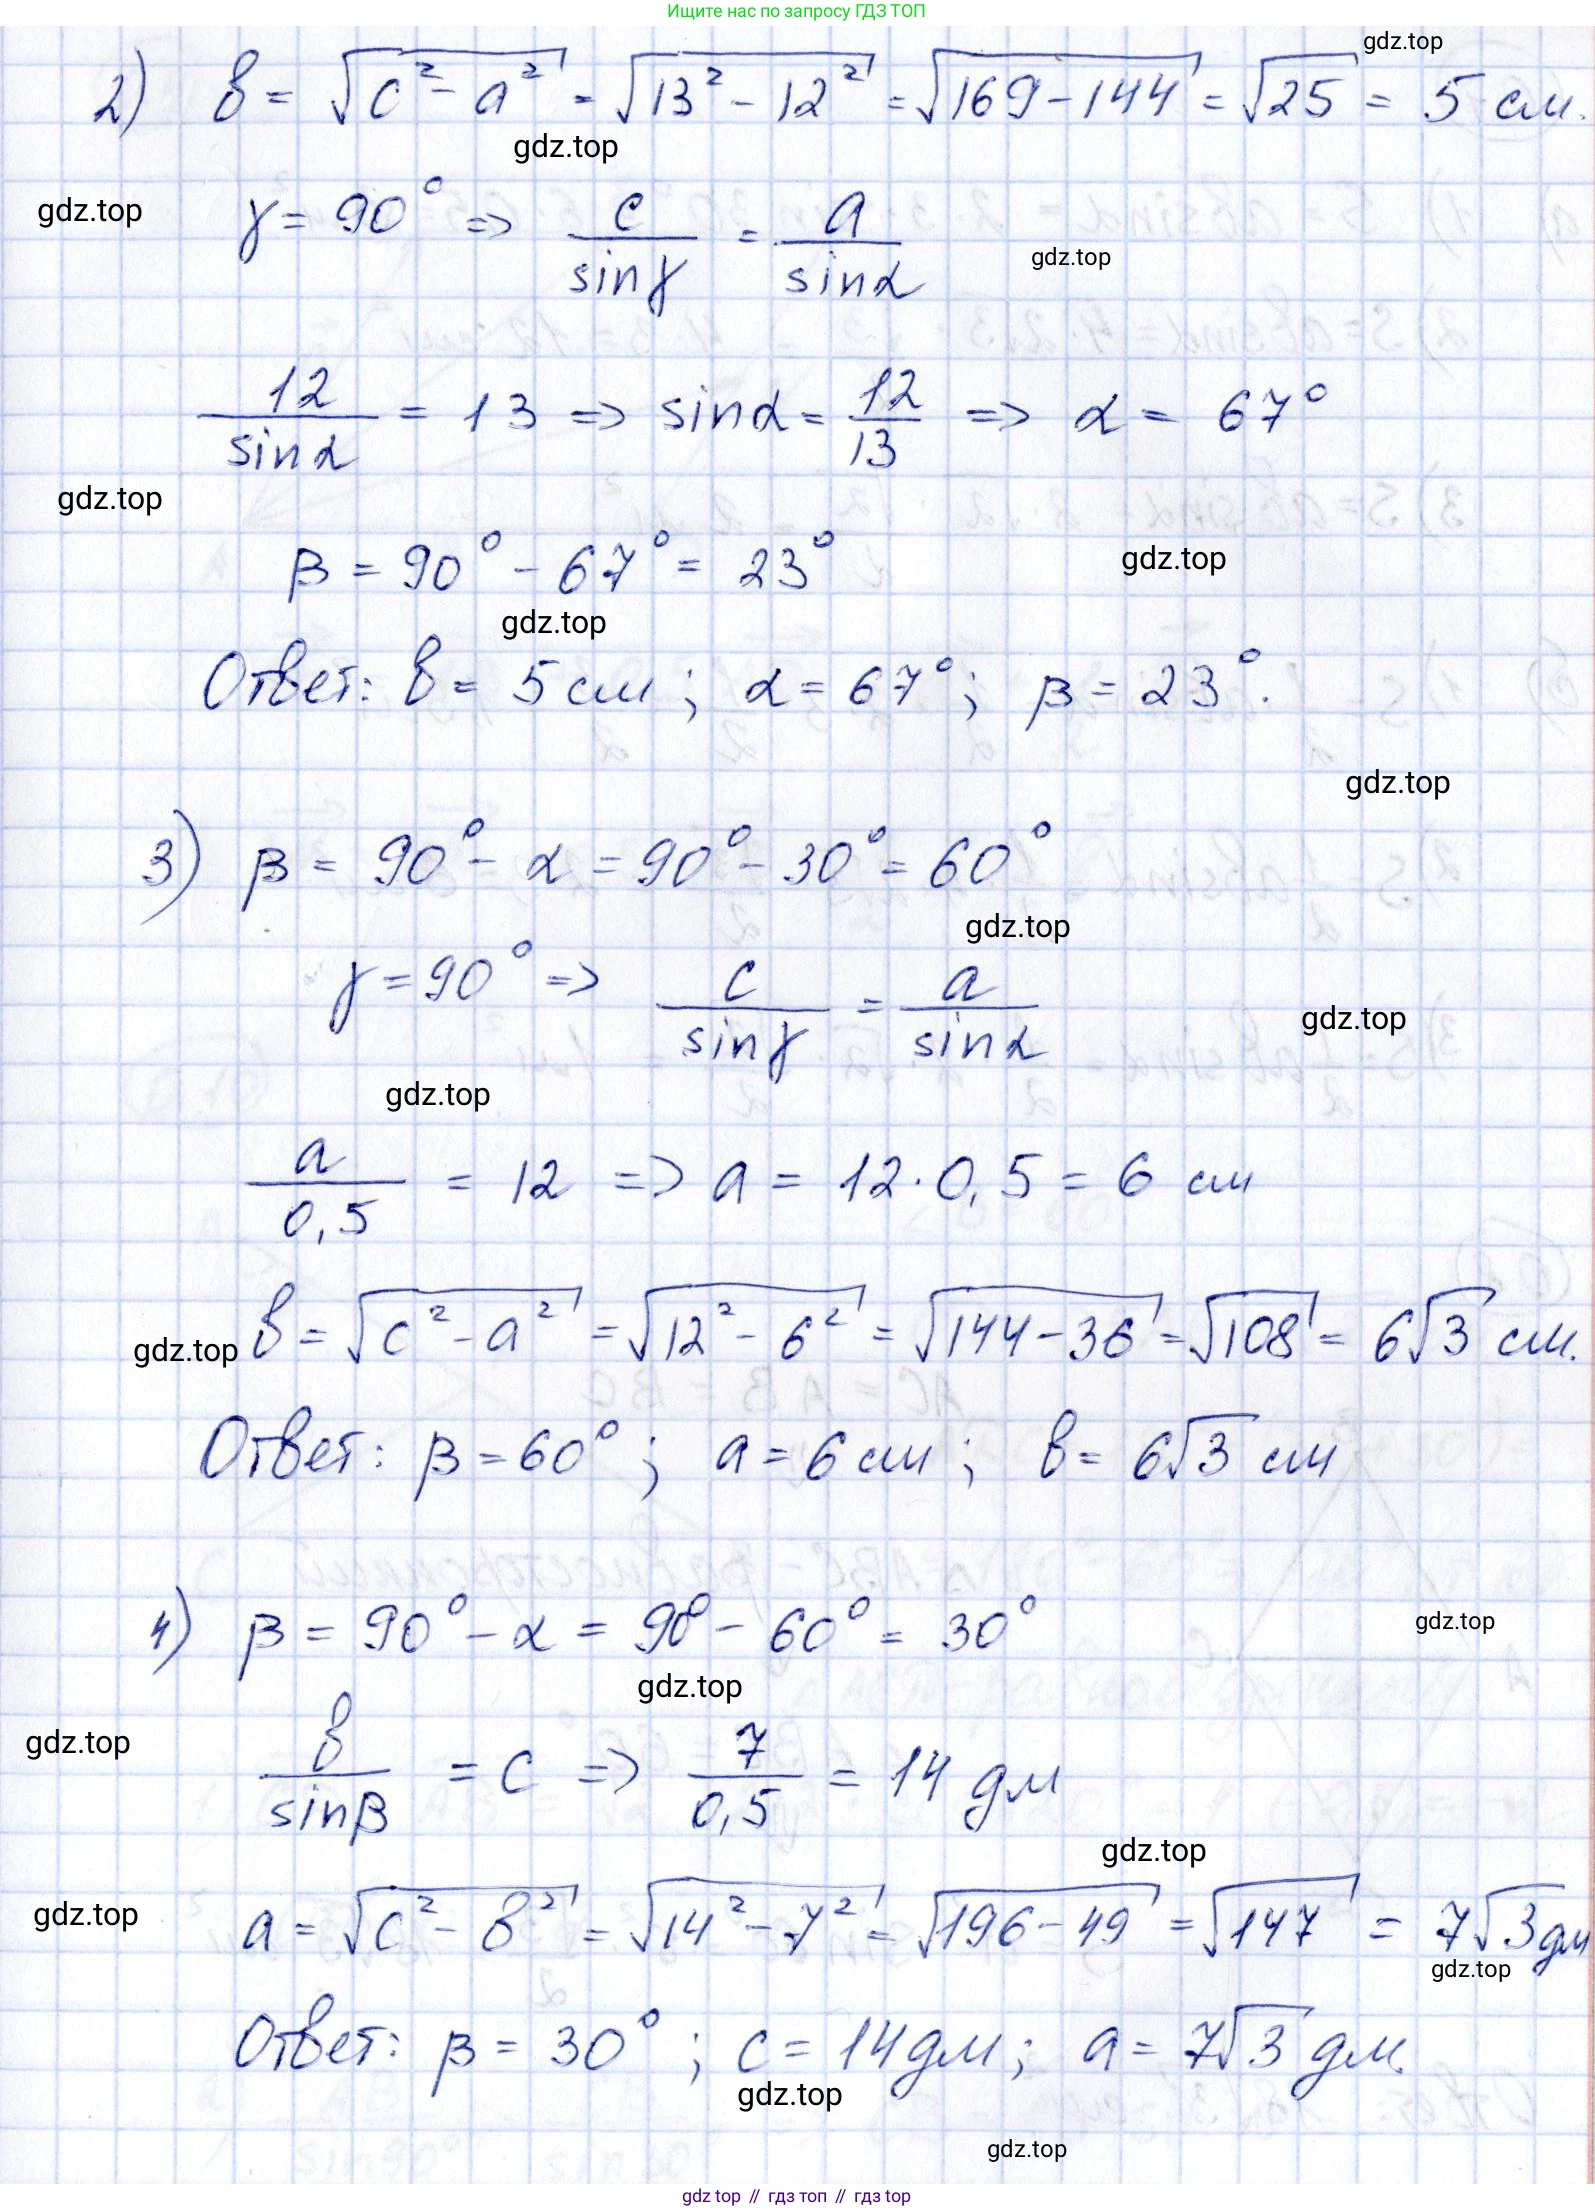 Ищите нас по запросу ГДЗ ТОП
gdz.top
2) b = √(c² - a²) = √(13² - 12²) = √(169 - 144) = √25 = 5 см.
gdz.top
gdz.top
γ = 90° => c/sinγ = a/sinα
gdz.top
12/sinα = 13 => sinα = 12/13 => α = 67°
gdz.top
β = 90° - 67° = 23°
gdz.top
gdz.top
Ответ: b = 5 см ; α = 67° ; β = 23°.
gdz.top
3) β = 90° - α = 90° - 30° = 60°
gdz.top
γ = 90° => c/sinγ = a/sinα
gdz.top
gdz.top
a/0,5 = 12 => a = 12 · 0,5 = 6 см
b = √(c² - a²) = √(12² - 6²) = √(144 - 36) = √108 = 6√3 см.
gdz.top
Ответ: β = 60° ; a = 6 см ; b = 6√3 см
4) β = 90° - α = 90° - 60° = 30°
gdz.top
gdz.top
gdz.top
b/sinβ = c => 7/0,5 = 14 дм
gdz.top
gdz.top
a = √(c² - b²) = √(14² - 7²) = √(196 - 49) = √147 = 7√3 дм
gdz.top
Ответ: β = 30° ; c = 14 дм ; a = 7√3 дм.
gdz.top
gdz.top
gdz top // гдз топ // gdz top